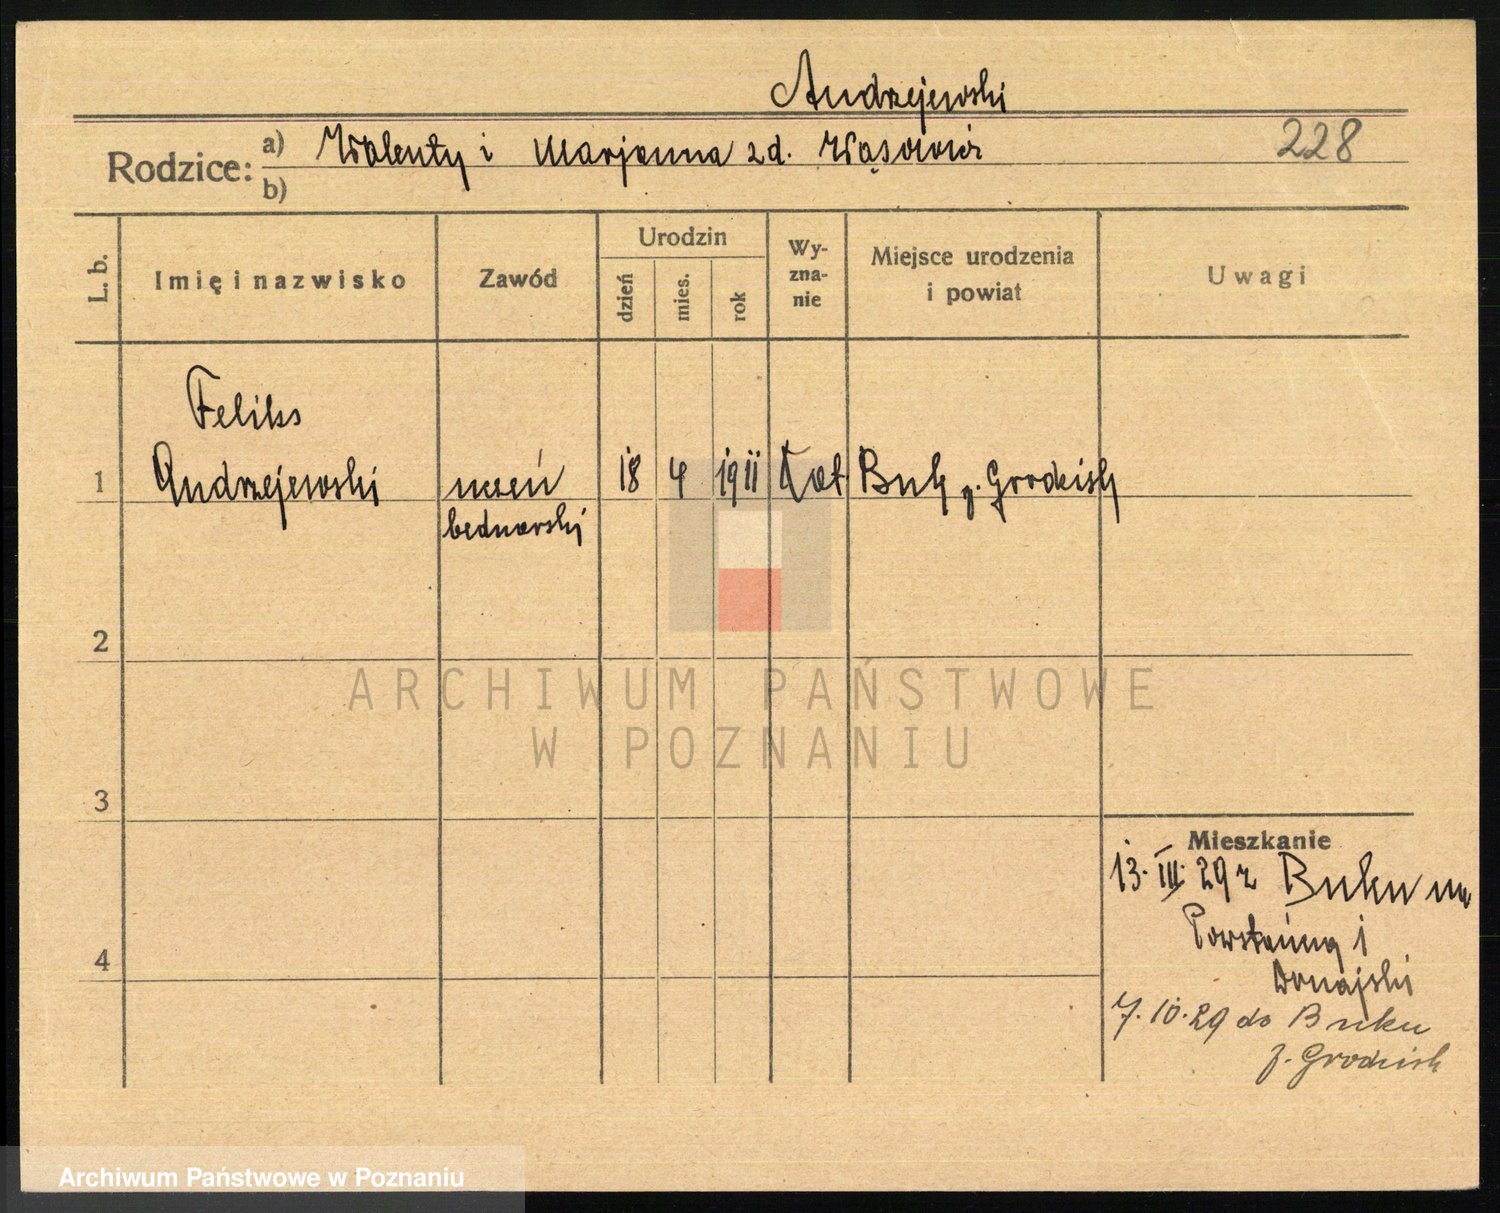 Andrzejewski
Rodzice: a) Walenty i Marjanna zd. Wąsowicz 228
b)
L. b. Imię i nazwisko Zawód Urodzin dzień mies. rok Wy-zna-nie Miejsce urodzenia i powiat Uwagi
Feliks
1 Andrzejewski uczeń 18 4 1911 Kat Buk p. Grodzisk
bednarski
2
3
Mieszkanie
13. III. 29 z Buku na
4
7.10.29 do Buku
p. Grodzisk
ARCHIWUM PAŃSTWOWE
W POZNANIU
Archiwum Państwowe w Poznaniu